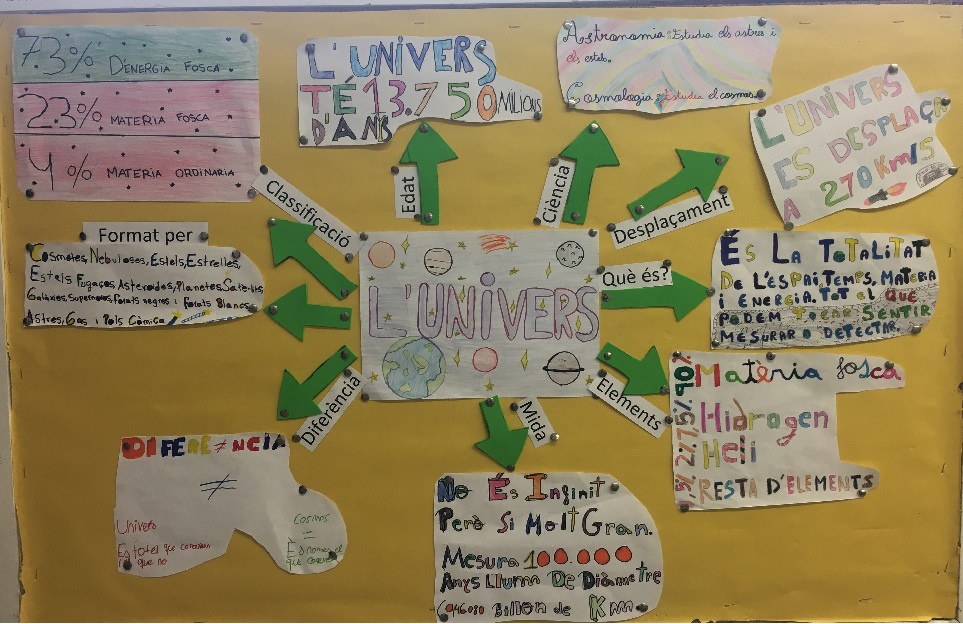 73% D'ENERGIA FOSCA
23% MATERIA FOSCA
4% MATERIA ORDINARIA
L'UNIVERS
TÉ 13.750 MILIONS
D'ANYS
Astronomia: Estudia els astres i
els estels.
Cosmologia: Estudia el cosmos.
L'UNIVERS
ES DESPLAÇA
A 270 Km/S
Classificació
Edat
Ciència
Desplaçament
Format per
Cosmetes, Nebuloses, Estels, Estrelles,
Estels Fugaços, Asteroides, Planetes, Satel·lits,
Galàxies, Supernoves, Forats negres i Forats Blancs,
Astres, Gas i Pols Còmica
L'UNIVERS
Què és?
ÉS LA TOTALITAT
DE L'ESPAI, TEMPS, MATERIA
i ENERGIA, TOT el QUE
PODEM TOCAR SENTIR
MESURAR O DETECTAR.
Diferència
Mida
Elements
DIFERÈNCIA
≠
Univers
Es totel que coneixem
i que no
Cosmos
=
És només el
que coneixem
No És Infinit
Però Si Molt Gran.
Mesura 100.000
Anys Llum De Diàmetre
Billon de Km
90%
Matèria fosca
Hidragen
Heli
RESTA D'ELEMENTS